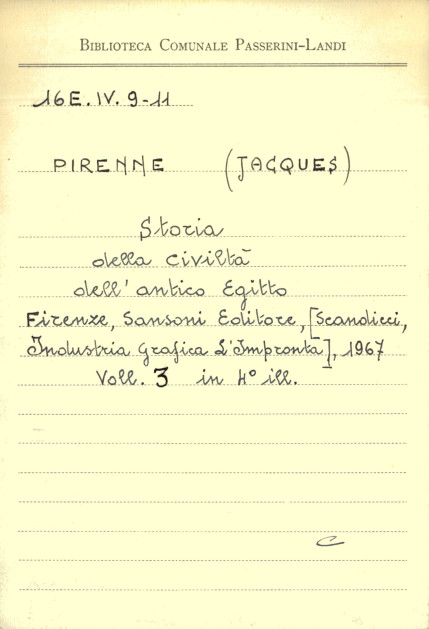 BIBLIOTECA COMUNALE PASSERINI-LANDI
16E.IV. 9-11
PIRENNE (JACQUES)
Storia
della civiltà
dell'antico Egitto
Firenze, Sansoni Editore, [Scandicci,
Industria Grafica L'Impronta], 1967
Voll. 3 in 4° ill.
C